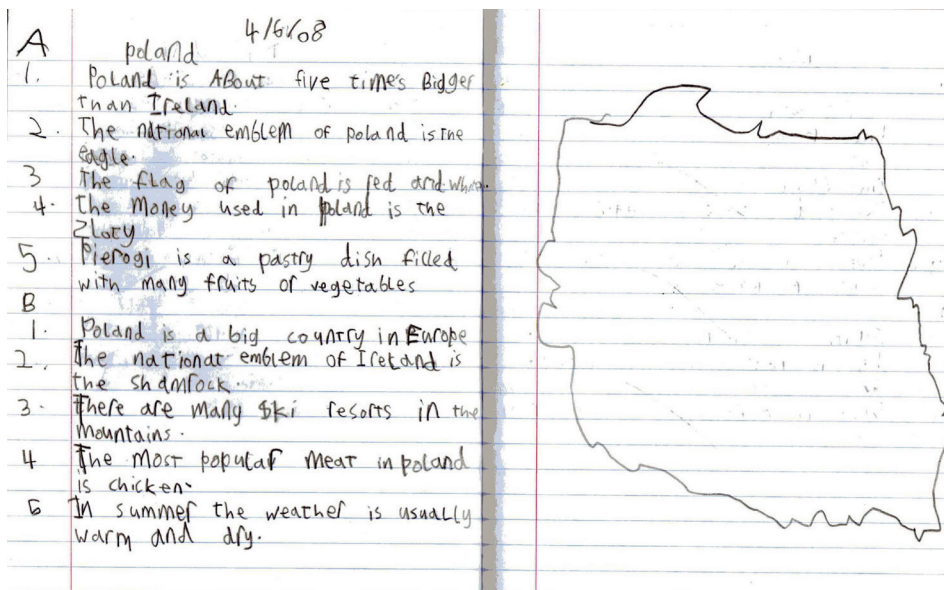 4/6/08
A poland
1. Poland is ABout five time's Bigger
than Ireland.
2. The national emblem of poland is the
eagle.
3 The flag of poland is red and white.
4. the Money used in poland is the
Zloty
5. Pierogi is a pastry dish filled
with many fruits or vegetables
B
1. Poland is a big country in Europe
2. The national emblem of Ireland is
the shamrock.
3. There are many Ski resorts in the
Mountains.
4 The Most popular meat in poland
is chicken.
5 In summer the weather is usually
warm and dry.